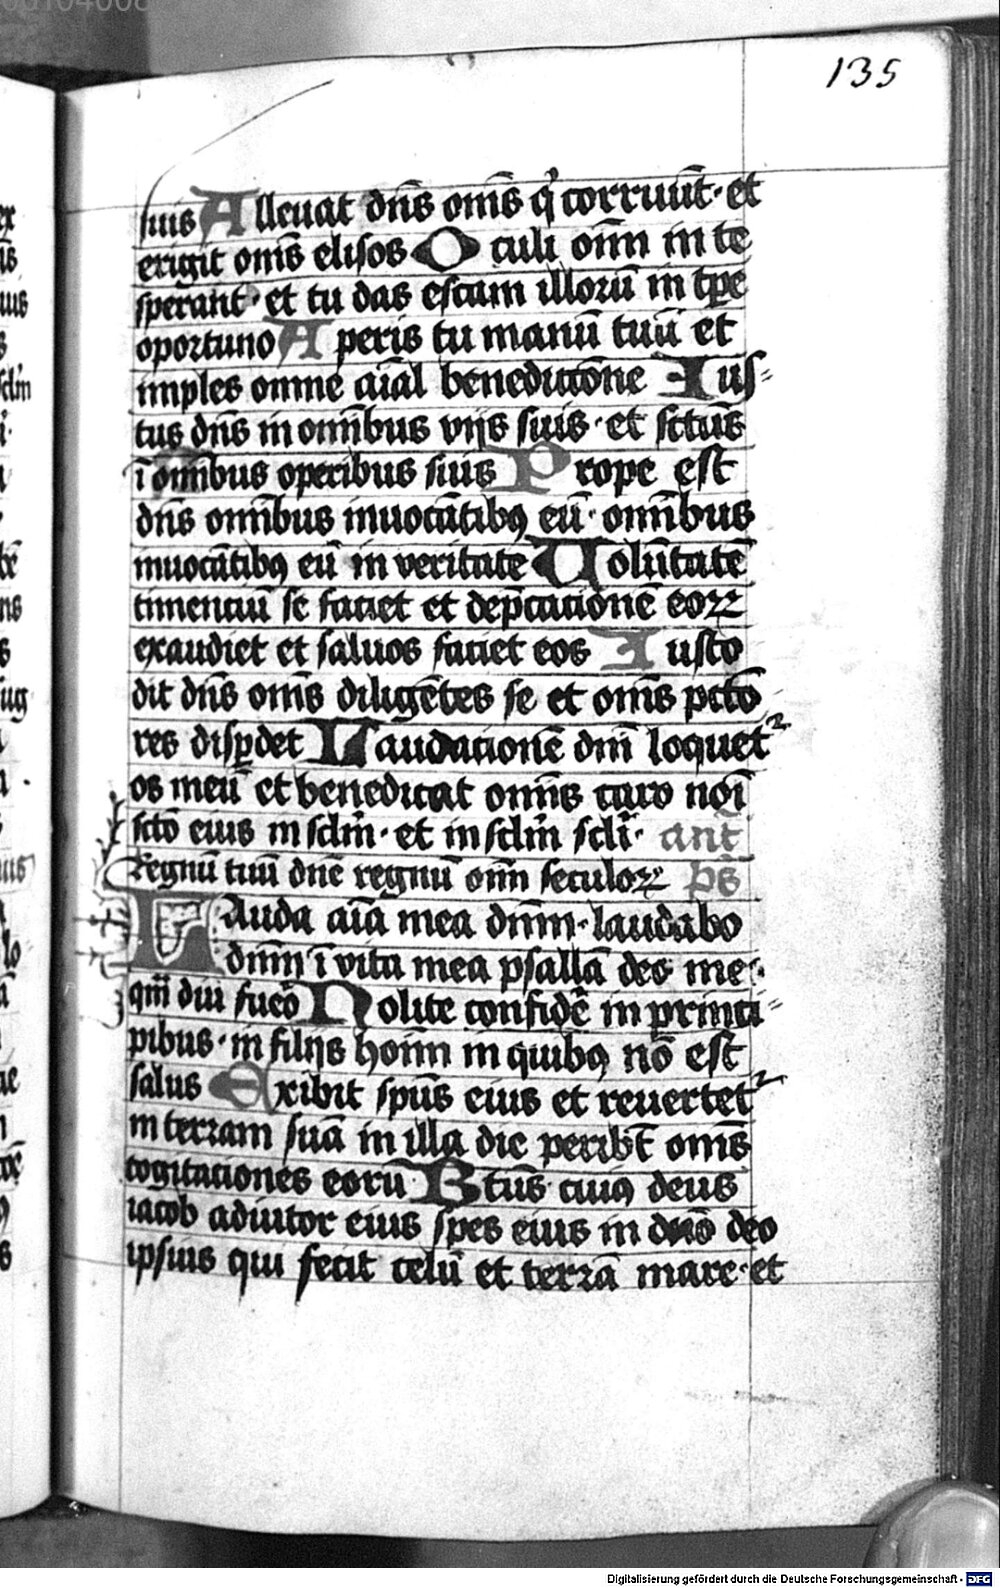 135
suis Alleuat dn̄s om̄s q̇ corruūt · et
erigit om̄s elisos Oculi om̄n in te
sperant · et tu das escam illorū in tp̄e
oportuno Aperis tu manū tuū et
imples omne aīal benedictōne Ius-
tus dn̄s in om̄ibus viis suis · et sctūs
ī om̄ibus operibus suis Prope est
dn̄s om̄ibus inuocātibꝰ eū · om̄ibus
inuocātibꝰ eū in veritate Volūtatē
timenciū se faciet et dep̄cacionē eoꝝ
exaudiet et saluos faciet eos Iusto
dit dn̄s om̄s diligētes se et om̄s pctō
res disꝑdet Laudacionē dn̄i loquet᷑
os meū et benedicat om̄is caro noī
sctō eius in sclm̄ · et in sclm̄ scli̅ · ant̄
Regnū tuū dn̄e regnū om̄n seculoꝝ p̄s
Lauda aīa mea dn̄m · laudabo
dn̄m ī vita mea psallā deo me-
qm̄ diu fueō Nolite confidē in princi-
pibus · in filiis hoīm in quibꝰ nō est
salus Exibit spūs eius et reuertet᷑
in terram suā in illa die peribt̄ om̄s
cogitaciones eorū Btūs cuiꝰ deus
iacob adiutor eius spes eius in dn̄o deo
ipsius qui fecit celū et terrā mare · et
Digitalisierung gefördert durch die Deutsche Forschungsgemeinschaft - DFG